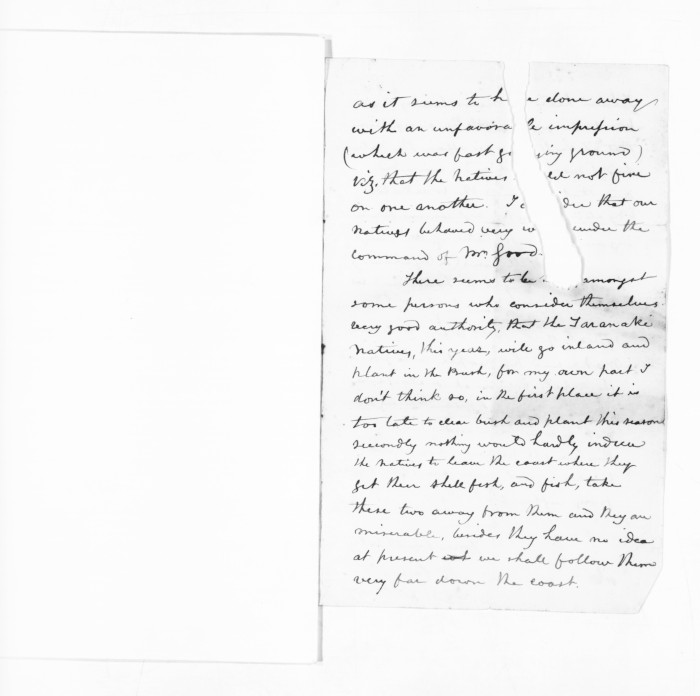 as it seems to h e done away
with an unfavora le impression
(which was fast g ing ground)
viz, that the Natives not fire
on one another. I der that our
Natives behaved very w under the
command of Mr. Good.
There seems to be amongst
some persons who consider themselves
very good authority, that the Taranaki
Natives, this year, will go inland and
plant in the Bush, for my own part I
don't think so, in the first place it is
too late to clear bush and plant this season
secondly nothing would hardly induce
the Natives to leave the coast where they
get their shell fish, and fish, take
these two away from them and they are
miserable, besides they have no idea
at present we shall follow them
very far down the coast.